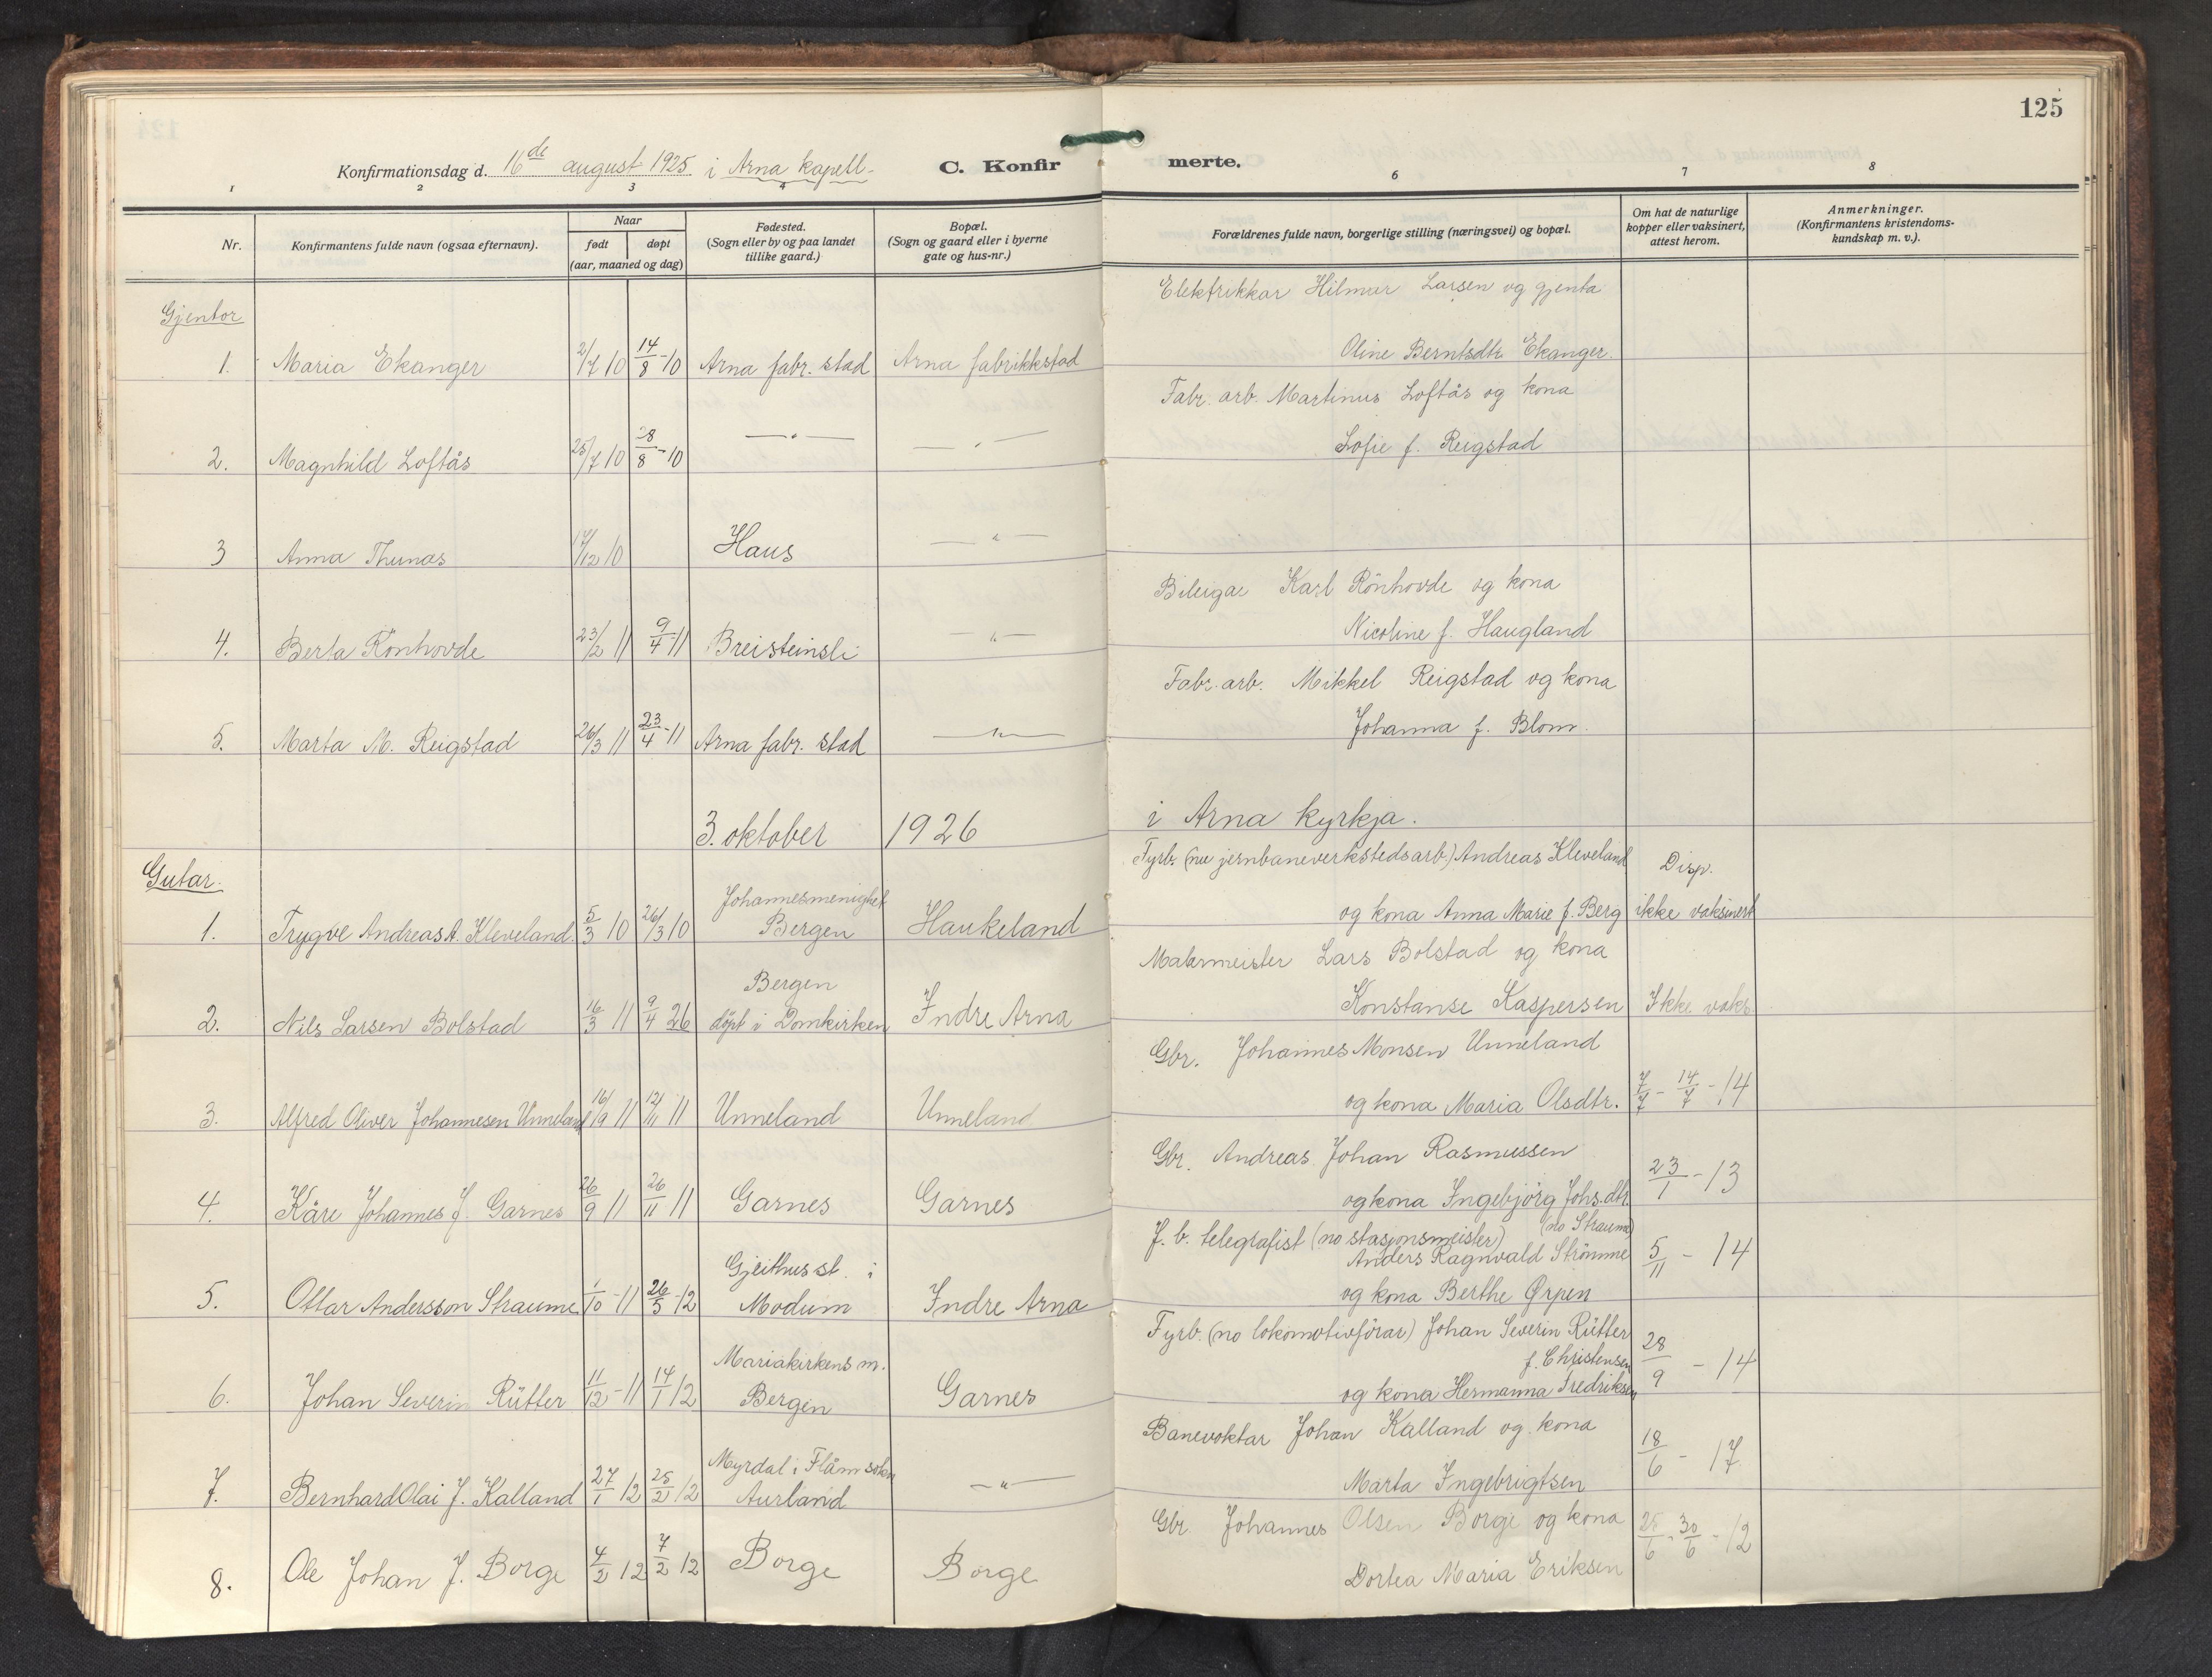 125
Konfirmationsdag d. 16de august 1925 i Arna kapell. C. Konfirmerte.
1 2 3 4 6 7 8
Nr. Konfirmantens fulde navn (ogsaa efternavn). Naar født døpt (aar, maaned og dag) Fødested. (Sogn eller by og paa landet tillike gaard.) Bopæl. (Sogn og gaard eller i byerne gate og hus-nr.) Forældrenes fulde navn, borgerlige stilling (næringsvei) og bopæl. Om hat de naturlige kopper eller vaksinert, attest herom. Anmerkninger. (Konfirmantens kristendoms-kundskap m. v.).
Gjentor
Elektrikkar Hilmar Larsen og gjenta
1. Maria Ekanger 2/7 10 14/8-10 Arna fabr. stad Arna fabrikkstad Oline Berntsdtr Ekanger.
Fabr. arb. Martinus Loftås og kona
2. Magnhild Loftås 25/7 10 28/8-10 —"— —"— Sofie f. Reigstad
3 Anna Thunæs 17/12 10 Haus —"—
Bileigar Karl Rönhovde og kona
4. Berta Rönhovde 23/2 11 9/4 11 Breisteinsli —"— Nicoline f. Haugland
Fabr. arb. Mikkel Reigstad og kona
5. Marta M. Reigstad 26/3 11 23/4-11 Arna fabr. stad —"— Johanna f. Blom.
3. oktober 1926 i Arna kyrkja.
Gutar.
Fyrb. (nu jernbaneverkstedsarb.) Andreas Kleveland Disp.
Johannesmenighet
1. Trygve Andreas A. Kleveland. 5/3 10 26/3 10 Bergen Haukeland og kona Anna Marie f. Berg ikke vaksinert
Malermeister Lars Bolstad og kona
Bergen
2. Nils Larsen Bolstad 16/3 11 9/4 26 döpt i Domkirken Indre Arna Konstanse Kaspersen Ikke vaks.
Gbr. Johannes Monsen Unneland
3. Alfred Oliver Johannesen Unneland 16/9 11 12/11 11 Unneland Unneland og kona Maria Olsdtr. 7/7 - 14/7 - 14
Gbr. Andreas Johan Rasmussen
4. Kåre Johannes J. Garnes 26/9 11 26/11 11 Garnes Garnes og kona Ingebjörg Johs.dtr. 23/1 - 13
J. b. telegrafist (no stasjonsmeister) (no Straume)
Anders Ragnvald Strömme
Gjeithus st. i
5. Ottar Andersson Straume 1/10 - 11 26/5 - 12 Modum Indre Arna og kona Berthe Ørpen 5/11 - 14
Fyrb. (no lokomotivförar) Johan Severin Rütter
f. Christensen
Mariakirkens m.
6. Johan Severin Rütter 11/12 - 11 14/1 12 Bergen Garnes og kona Hermanna Fredriksen 28/9 - 14
Banevoktar Johan Kalland og kona
Myrdal i Flåm sokn
7. Bernhard Olai J. Kalland 27/1 12 25/2 12 Aurland —"— Marta Ingebrigtsen 18/6 - 17
Gbr. Johannes Olsen Borge og kona
8. Ole Johan J. Borge 4/2 12 7/2 12 Borge Borge Dortea Maria Eriksen 25/6 - 30/6 - 12